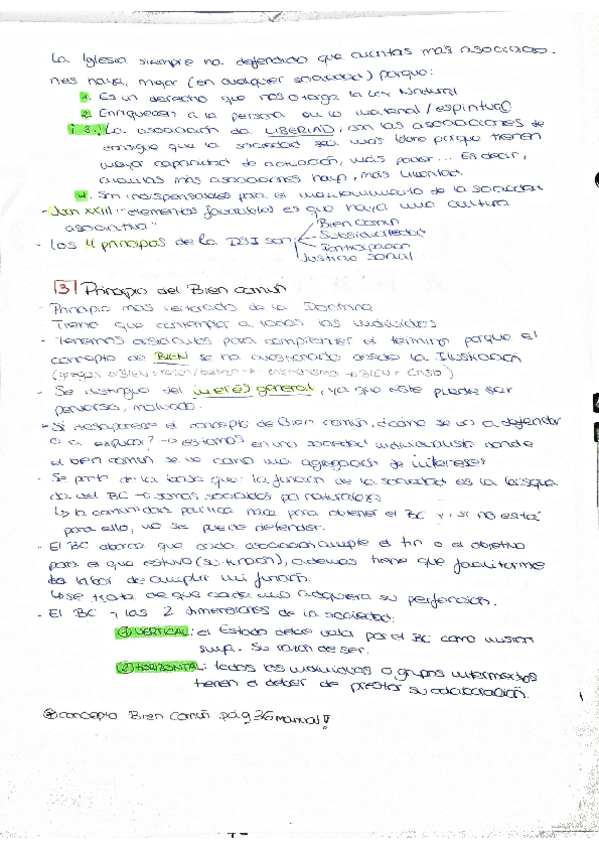 La Iglesia siempre ha defendido que cuantas más asociacio-
nes haya, mejor (en cualquier sociedad) porque:
1. Es un derecho que nos otorga la Ley Natural
2. Enriquecen a la persona en lo material/espiritual
¡ 3. La asociación da LIBERTAD, con las asociaciones se
consigue que la sociedad sea más libre porque tienen
mayor capacidad de actuación, más poder... Es decir,
cuantas más asociaciones haya, más libertad.
4. Son indispensables para el mantenimiento de la sociedad
- Juan XXIII: "elementos favorables es que haya una cultura
asociativa"
- Los 4 principios de la DSI son
Bien Común
Subsidiariedad
Participación
Justicia Social
3 Principio del Bien Común
- Principio más reiterado de la Doctrina
Tiene que contemplar a todos los individuos
- Tenemos obstáculos para comprender el término porque el
concepto de BIEN se ha cuestionado desde la Ilustración
- Se distingue del interés general, ya que éste puede ser
perverso, malvado.
- Si desaparece el concepto de Bien Común, ¿cómo se va a defender
o a explicar? → estamos en una sociedad individualista donde
el bien común se ve como una agregación de intereses
- Se parte de la base que: la función de la sociedad es la búsque-
da del BC → somos sociables por naturaleza
↳ la comunidad política nace para obtener el BC y, si no está
para ello, no se puede defender.
- El BC abarca que cada asociación cumpla el fin o el objetivo
para el que estuvo (su función), además tiene que facilitarme
la labor de cumplir mi función.
↳ se trata de que cada uno adquiera su perfección.
- El BC y las 2 dimensiones de la sociedad:
1 VERTICAL: el Estado debe velar por el BC como misión
sup. Su razón de ser.
2 HORIZONTAL: todos los individuos o grupos intermedios
tienen el deber de prestar su colaboración.
* concepto Bien Común pág 36 manual!